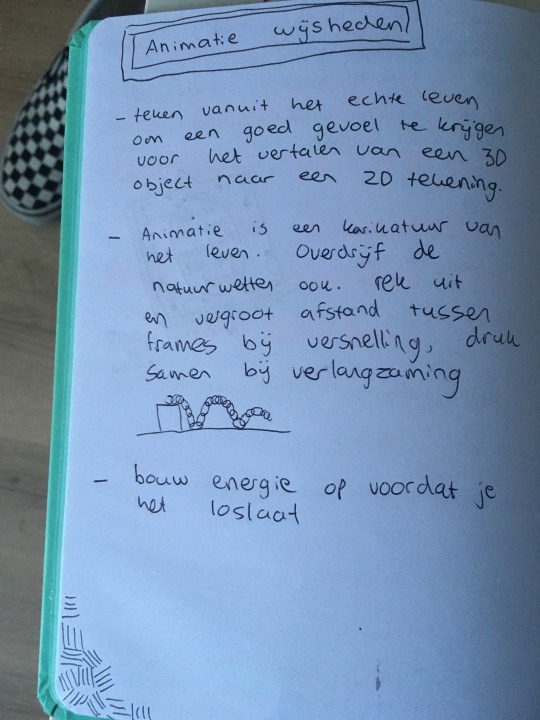 Animatie wijsheden
- teken vanuit het echte leven
om een goed gevoel te krijgen
voor het vertalen van een 3D
object naar een 2D tekening.
- Animatie is een karikatuur van
het leven. Overdrijf de
natuurwetten ook. rek uit
en vergroot afstand tussen
frames bij versnelling, druk
samen bij verlangzaming
- bouw energie op voordat je
het loslaat